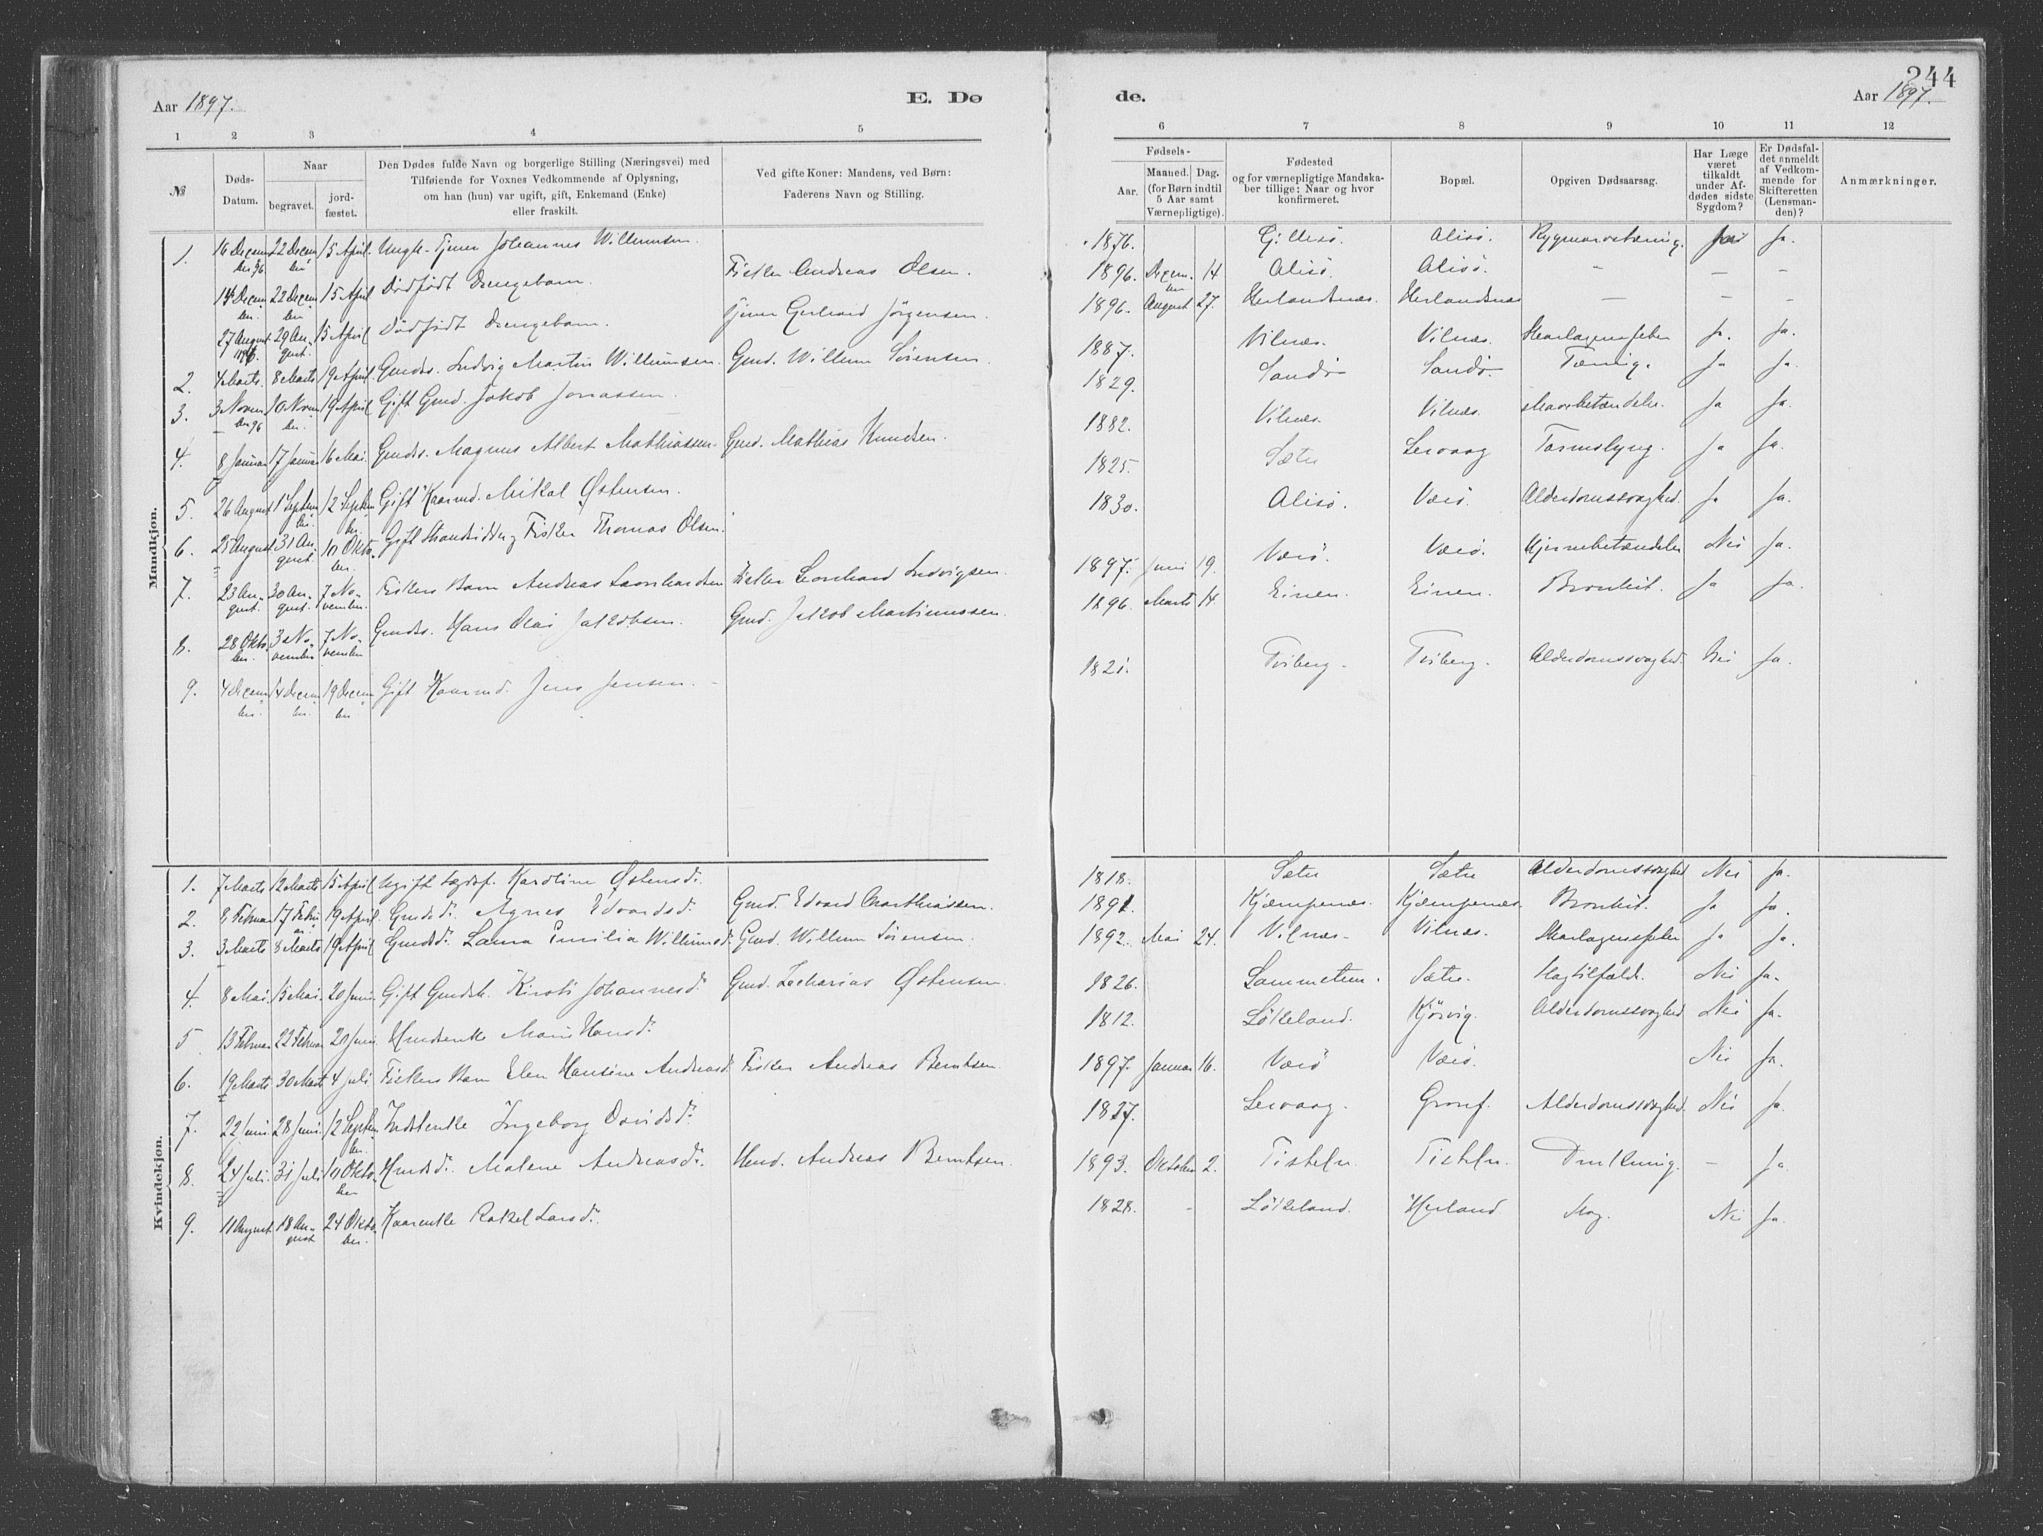 244
Aar 1897.
E. Dø
de.
Aar 1897.
1 2 3 4 5 6 7 8 9 10 11 12
№
Døds-
Datum.
Naar
begravet.
jord-
fæstet.
Den Dødes fulde Navn og borgerlige Stilling (Næringsvei) med
Tilføiende for Voxnes Vedkommende af Oplysning,
om han (hun) var ugift, gift, Enkemand (Enke)
eller fraskilt.
Ved gifte Koner: Mandens, ved Børn:
Faderens Navn og Stilling.
Fødsels-
Aar.
Maaned. Dag.
(for Børn indtil
5 Aar samt
Værnepligtige).
Fødested
og for værnepligtige Mandska-
ber tillige: Naar og hvor
konfirmeret.
Bopæl.
Opgiven Dødsaarsag.
Har Læge
været
tilkaldt
under Af-
dødes sidste
Sygdom?
Er Dødsfal-
det anmeldt
af Vedkom-
mende for
Skifteretten
(Lensman-
den)?
Anmærkninger.
Mandkjøn.
1. 16 Decem ber 96 22 Decem ber 15 April. Ungk. Tjener Johannes Willumsen. 1876. Alisö. ja.
14 Decem ber. 22 Decem ber 15 April Dödfödt Drengebarn. Fisker Andreas Olsen. 1896. Decem ber 14 Alisö. Alisö. - — -
27 August 1896. 29 Au- gust. 15 April Dödfödt Drengebarn. Tjener Gerhard Jörgensen. 1896. August 27. Herlandsnæs. Herlandsnæs — - -
2. 4 Marts. 8 Marts 19 April. Gmdss. Ludvig Martin Willumsen. Gmd. Willum Sörensen 1887. Vilnæs. Vilnæs. Skarlagensfeber Ja. Ja.
3. 3 Novem ber 96 10 Novem ber. 19 April Gift Gmd. Jakob Jonassen. 1829. Sandö Sandö. Tæring. Ja Ja.
4. 8 Januar 17 Januar 16 Mai. Gmdss. Magnus Albert Mathiassen. Gmd. Mathias Knudsen. 1882. Vilnæs. Vilnæs. Ja Ja.
5. 26 August 1 Septem ber. 12 Septem ber. Gift Kaarmd. Mikal Østensen. 1825. Sætre Leirvaag Tarmslyng. Ja Ja.
6. 25 August 31 Au- gust. 10 Okto- ber. Gift Strandsidder og Fisker Thomas Olsen. 1830. Alisö. Værö. Alderdomssvaghed Ja Ja.
7. 23 Au- gust. 30 Au- gust. 7 No- vember. Fiskers Barn Andreas Leonhardsen Fisker Leonhard Ludvigsen. 1897. Juni 19. Værö. Værö. Hjernebetændelse Nei Ja.
8. 28 Okto- ber. 3 No- vember 7 No- vember Gmdss. Hans Olai Jakobsen. Gmd. Jakob Martinussen. 1896. Marts 14 Einen. Einen. Bronkit. Ja Ja.
9. 4 Decem ber. 14 Decem ber. 19 Decem ber Gift Kaarmd. Jens Jensen. 1821. Tviberg. Tviberg. Alderdomssvaghed. Nei Ja.
Kvindekjøn.
1. 7 Marts 12 Marts 15 April Ugift Lægdsf. Karoline Østensd. 1818. Sætre Sætre Alderdomssvaghed Nei Ja.
2. 8 Februar 17 Febru ar 19 April. Gmdsd. Agnes Edvardsd. Gmd. Edvard Mathiassen. 1891. Kjempenæs. Kjempenæs. Bronkit. Ja Ja.
3. 3 Marts 8 Marts 19 April Gmdsd. Laura Emilia Willumsd. Gmd. Willum Sörensen. 1892. Mai 24. Vilnæs. Vilnæs. Skarlagensfeber Ja Ja.
4. 8 Mai. 15 Mai. 20 Juni. Gift Gmdsk. Kirsti Johannesd. Gmd. Zacharias Østensen 1826. Sætre. Slagtilfælde. Nei Ja.
5 13 Februar 22 Februar 20 Juni. Marie Hansd. 1812. Lökeland. Kjörvig. Alderdomssvaghed Nei Ja.
6. 19 Marts 30 Marts 4 Juli Fiskers Barn Elen Hansine Andreasd. Fisker Andreas Berntsen. 1897. Januar 16. Værö Værö. Nei Ja.
7. 22 Juni. 28 Juni. 12 Septem ber. Inderstenke Ingeborg Davidsd. 1827. Leirvaag. Alderdomssvaghed. Nei Ja.
8. 24 Juli. 31 Juli 10 Okto ber Hmdsd. Malene Andreasd. Hmd. Andreas Berntsen. 1893. Oktober 2. Tisteln. Tisteln. Drukning. - Ja.
9. 11 August. 18 Au- gust 24 Okto- ber. Kaarenke Rakel Larsd. 1828. - Lökeland. Herland Nei Ja.